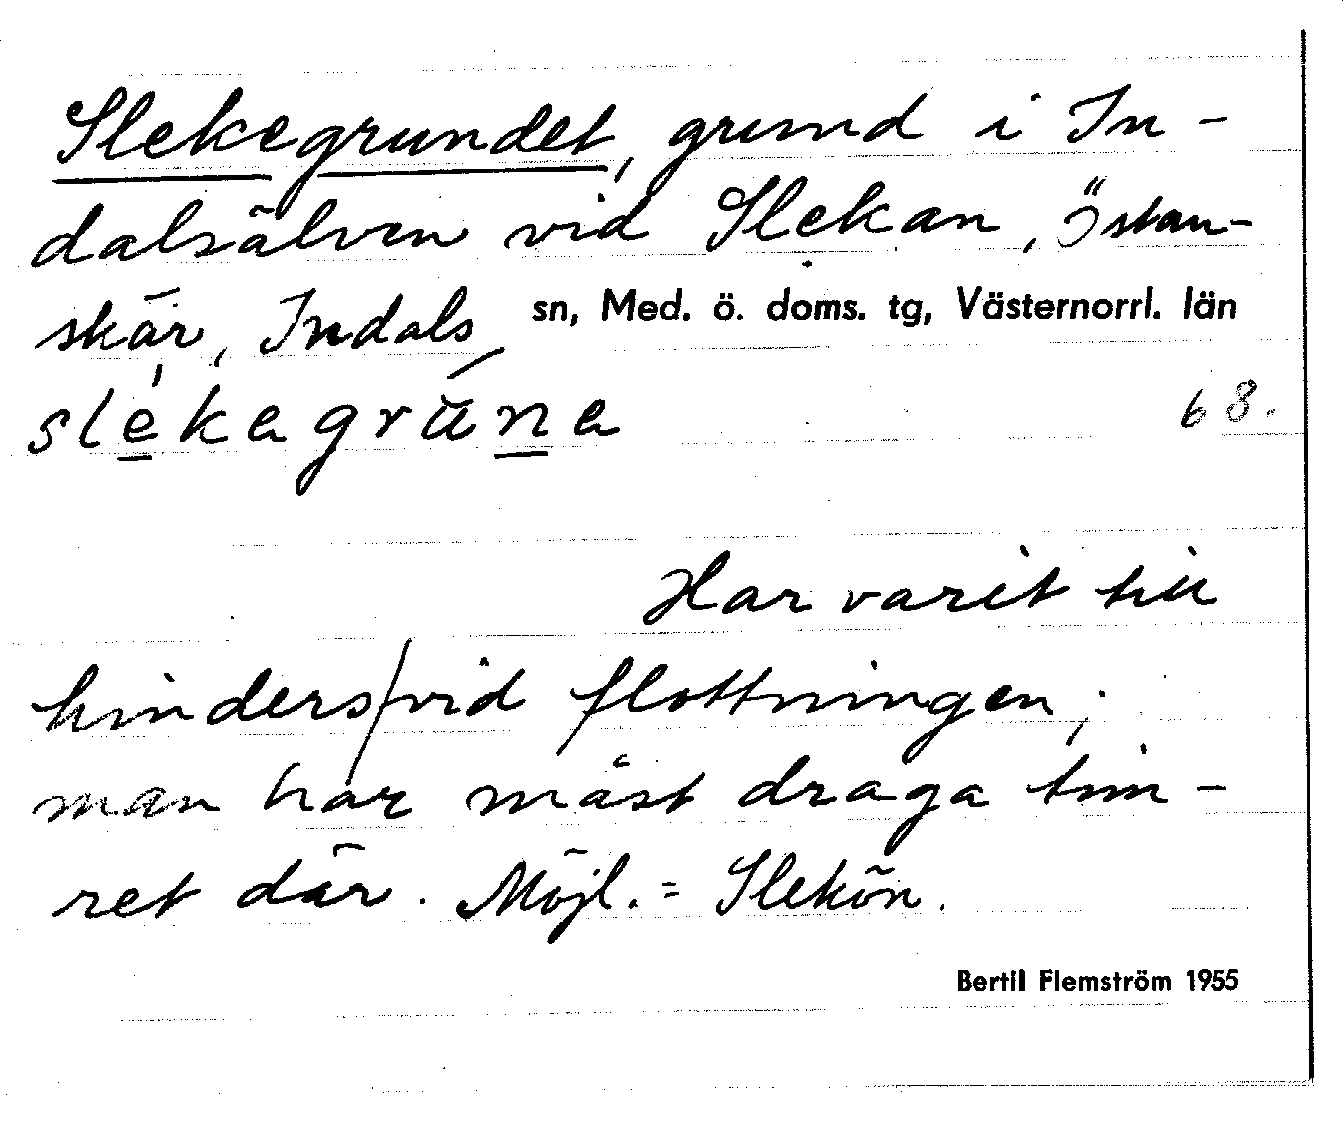 Slekegrundet, grund i In-
dalsälven vid Slekan, Östan-
skär, Indals sn, Med. ö. doms. tg, Västernorrl. län
slekegrune 68.
Har varit till
hinders vid flottningen;
man har måst draga tim-
ret där. Möjl. = Slekön.
Bertil Flemström 1955